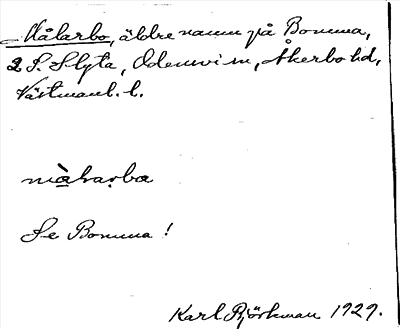 Målarbo, äldre namn på Bomma,
2 S. Slyta, Odensvi sn, Åkerbo hd,
Västmanl. l.
màlarba
Se Bomma!
Karl Björkman 1929.